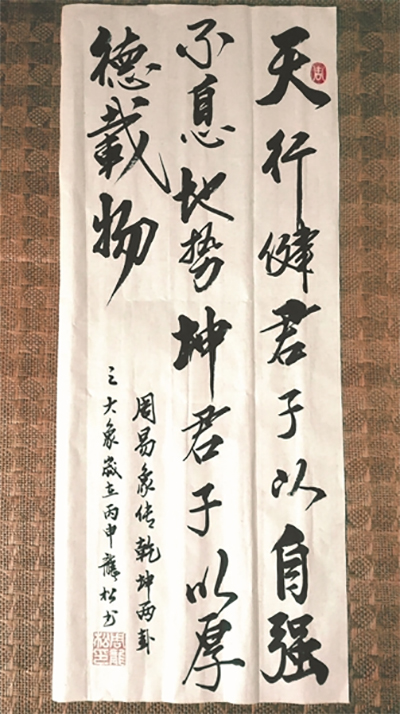 天行健君子以自强
不息地势坤君子以厚
德载物
周易象传乾坤两卦
之大象岁在丙申龙松书